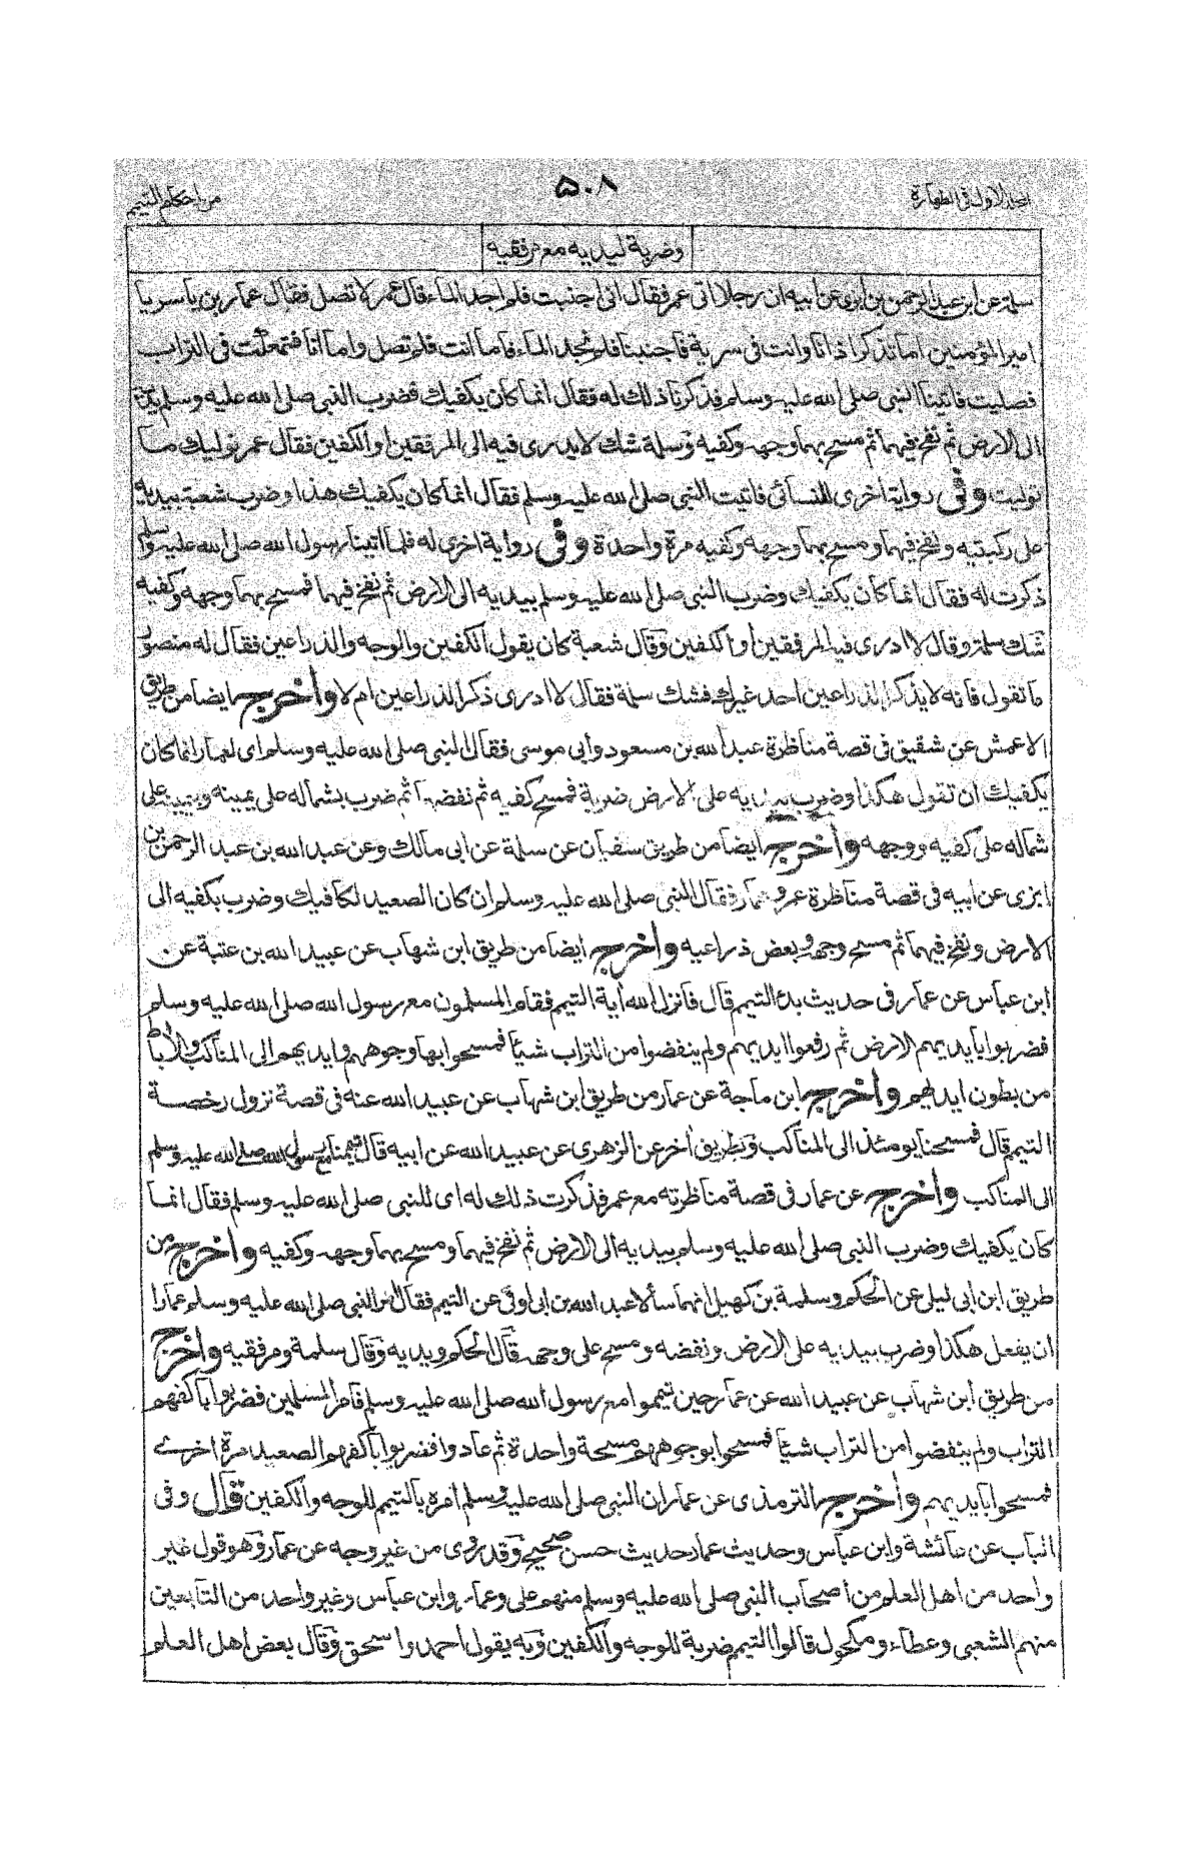 المجلد الاول فى الطهارة
۵۰۸
من احكام التيمم
وضربة ليديه مع مرفقيه
سلمة عن ابن عبد الرحمن بن ابزى عن ابيه ان رجلا اتى عمر فقال انى اجنبت فلم اجد الماء قال عمر لا تصل فقال عمار بن ياسر يا
امير المؤمنين اما تذكر اذ انا وانت فى سرية فاجنبنا فلم نجد الماء فاما انت فلم تصل واما انا فتمعكت فى التراب
فصليت فاتينا النبى صلى الله عليه وسلم فذكرنا ذلك له فقال انما كان يكفيك فضرب النبى صلى الله عليه وسلم يديه
الى الارض ثم نفخ فيهما ثم مسح بهما وجهه وكفيه وسلمة شك لا يدرى فيه الى المرفقين او الكفين فقال عمر نوليك ما
توليت وفى رواية اخرى للنسائى فاتيت النبى صلى الله عليه وسلم فقال انما كان يكفيك هذا وضرب شعبة بيديه
على ركبتيه ونفخ فيهما ومسح بهما وجهه وكفيه مرة واحدة وفى رواية اخرى له فلما اتينا رسول الله صلى الله عليه وسلم
ذكرت له فقال انما كان يكفيك وضرب النبى صلى الله عليه وسلم بيديه الى الارض ثم نفخ فيهما فمسح بهما وجهه وكفيه
شك سلمة وقال لا ادرى فيه المرفقين او الكفين وقال شعبة كان يقول الكفين والوجه والذراعين فقال له منصور
ما تقول فانه لا يذكر الذراعين احد غيرك فشك سلمة فقال لا ادرى ذكر الذراعين ام لا واخرج ايضا من طريق
الاعمش عن شقيق فى قصة مناظرة عبد الله بن مسعود وابى موسى فقال النبى صلى الله عليه وسلم اى لعمار انما كان
يكفيك ان تقول هكذا وضرب بيديه على الارض ضربة فمسح كفيه ثم نفضهما ثم ضرب بشماله على يمينه وبيمينه على
شماله على كفيه ووجهه واخرج ايضا من طريق سفيان عن سلمة عن ابى مالك وعن عبد الله بن عبد الرحمن بن
ابزى عن ابيه فى قصة مناظرة عمر وعمار فقال النبى صلى الله عليه وسلم ان كان الصعيد لكافيك وضرب بكفيه الى
الارض ونفخ فيهما ثم مسح وجهه وبعض ذراعيه واخرج ايضا من طريق ابن شهاب عن عبيد الله بن عتبة عن
ابن عباس عن عمار فى حديث بدء التيمم قال فانزل الله اٰية التيمم فقام المسلمون مع رسول الله صلى الله عليه وسلم
فضربوا بايديهم الارض ثم رفعوا ايديهم ولم ينفضوا من التراب شيئا فمسحوا بها وجوههم وايديهم الى المناكب والاٰباط
من بطون ايديهم واخرج ابن ماجة عن عمار من طريق ابن شهاب عن عبيد الله عنه فى قصة نزول رخصة
التيمم قال فمسحنا يومئذ الى المناكب وبطريق اٰخر عن الزهرى عن عبيد الله عن ابيه قال تيممنا مع رسول الله صلى الله عليه وسلم
الى المناكب واخرج عن عمار فى قصة مناظرته مع عمر فذكرت ذلك له اى للنبى صلى الله عليه وسلم فقال انما
كان يكفيك وضرب النبى صلى الله عليه وسلم بيديه الى الارض ثم نفخ فيهما ومسح بهما وجهه وكفيه واخرج من
طريق ابن ابى ليلى عن الحكم وسلمة بن كهيل انهما سألا عبد الله بن ابى اوفى عن التيمم فقال امر النبى صلى الله عليه وسلم عمارا
ان يفعل هكذا وضرب بيديه على الارض ونفضه ومسح على وجهه قال الحكم ويديه وقال سلمة ومرفقيه واخرج
من طريق ابن شهاب عن عبيد الله عن عمار حين تيمموا مع رسول الله صلى الله عليه وسلم فامر المسلمين فضربوا باكفهم
التراب ولم ينفضوا من التراب شيئا فمسحوا بوجوههم مسحة واحدة ثم عادوا فضربوا باكفهم الصعيد مرة اخرى
فمسحوا بايديهم واخرج الترمذى عن عمار ان النبى صلى الله عليه وسلم امره بالتيمم للوجه والكفين قال وفى
الباب عن عائشة وابن عباس وحديث عمار حديث حسن صحيح وقد روى من غير وجه عن عمار وهو قول غير
واحد من اهل العلم من اصحاب النبى صلى الله عليه وسلم منهم على وعمار وابن عباس وغير واحد من التابعين
منهم الشعبى وعطاء ومكحول قالوا التيمم ضربة للوجه والكفين وبه يقول احمد واسحق وقال بعض اهل العلم